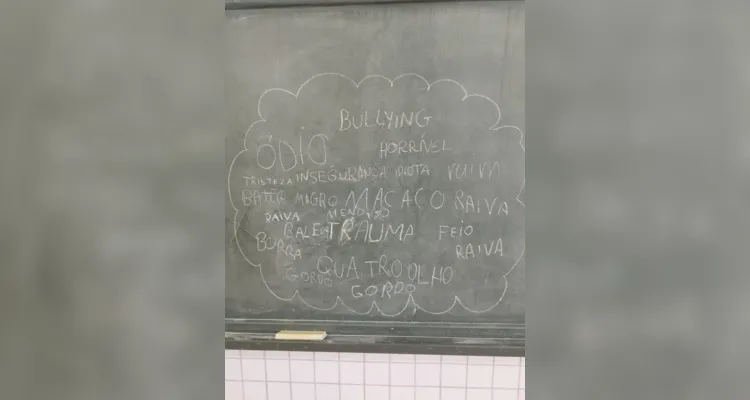 BULLYING
ÓDIO HORRÍVEL
TRISTEZA INSEGURANÇA IDIOTA raiva
BATER MAGRO MACACO RAIVA
RAIVA MENDIGO
BALEIA TRAUMA FEIO
BURRA RAIVA
GORDO QUATRO OLHO
GORDO